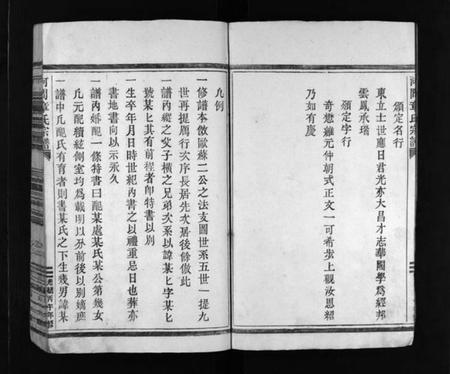 頒定名行
東立士世應日君光亦大昌才志華國學為經邦
雲鳳承瑞
頒定字行
奇懋維元仲朝式正文一可希步上觀汝思紹
乃如有慶
凡例
一修譜本倣歐蘇二公之法支圖世系五世一提九
世再提為行次序長居先次居後餘倣此
一譜內縱之父子橫之兄弟次系以諱某七字某七
號某七其有前程者即特書以別
一生卒年月日時世紀內書之以禮重忌日也葬亦
書地書向以示永久
一譜內婚配一條特書曰配某處某氏某公第幾女
凡元配積繞側室均為載明以昇前後以別嫡庶
一譜中凡配氏有育者則書某氏之下生幾男諱某
河間章氏宗譜